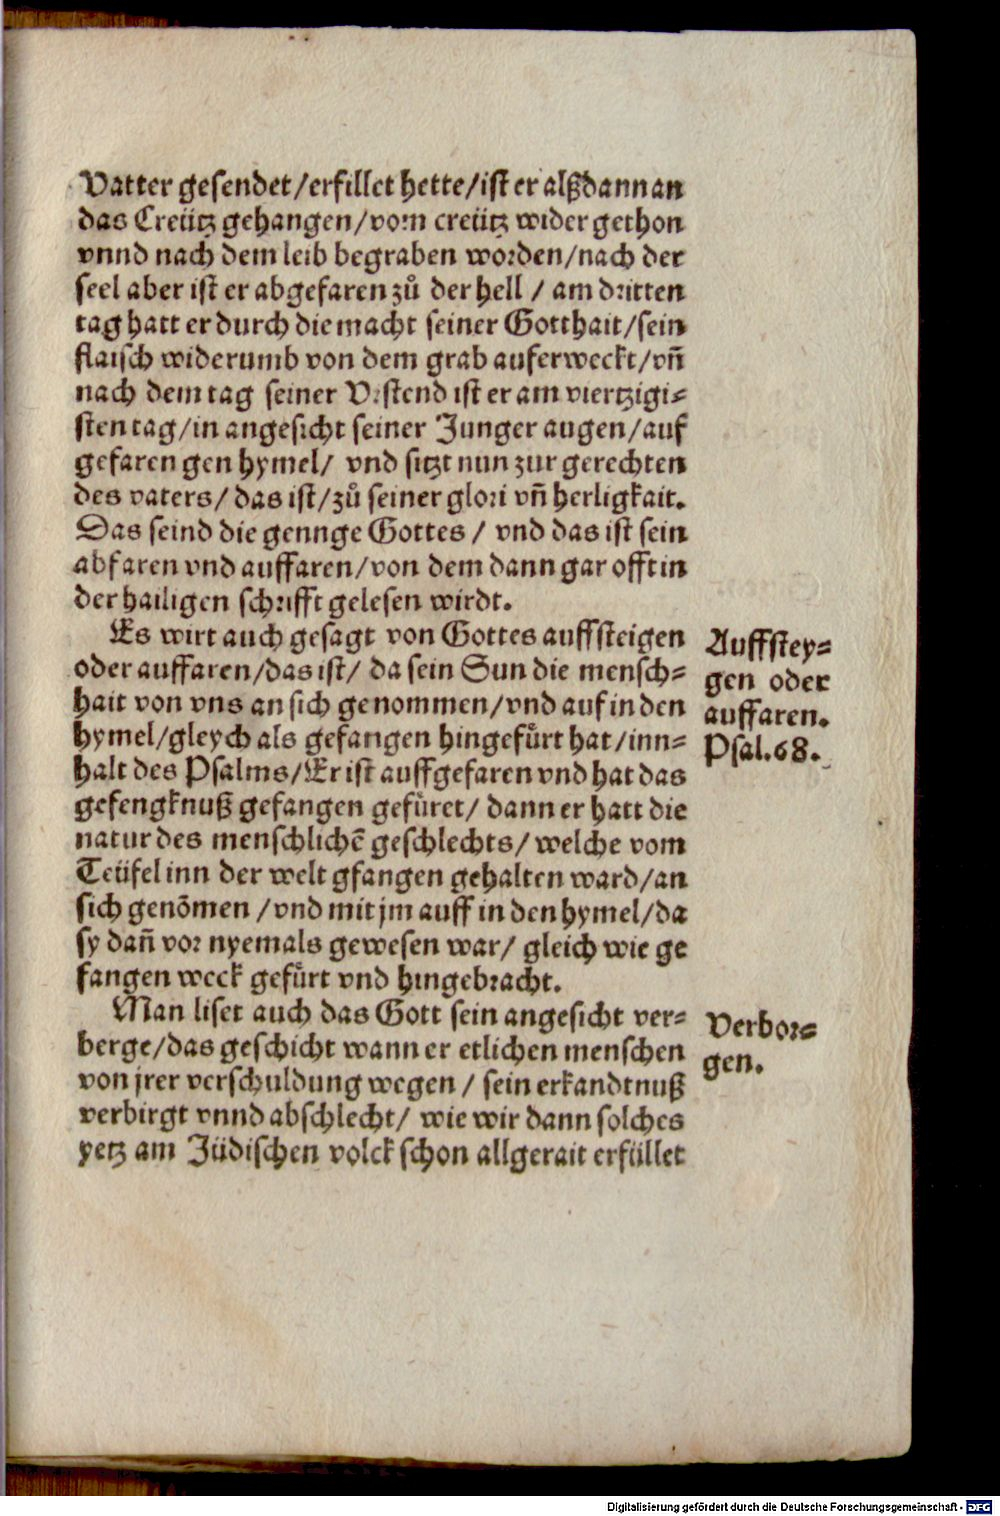 Vatter gesendet/erfillet hette/ist er alßdann an
das Creütz gehangen/vom creütz wider gethon
vnnd nach dem leib begraben worden/nach der
seel aber ist er abgefaren zů der hell / am dritten
tag hatt er durch die macht seiner Gotthait/sein
flaisch widerumb von dem grab auferweckt/vñ
nach dem tag seiner Vrstend ist er am viertzigi⸗
sten tag/in angesicht seiner Junger augen/auf
gefaren gen hymel/ vnd sitzt nun zur gerechten
des vaters/ das ist/zů seiner glori vñ herligkait.
Das seind die gennge Gottes / vnd das ist sein
abfaren vnd auffaren/von dem dann gar offt in
der hailigen schrifft gelesen wirdt.
Es wirt auch gesagt von Gottes auffsteigen
oder auffaren/das ist/ da sein Sun die mensch⸗
hait von vns an sich genommen/vnd auf in den
hymel/gleych als gefangen hingefůrt hat/inn⸗
halt des Psalms/Er ist auffgefaren vnd hat das
gefengknuß gefangen gefůret/ dann er hatt die
natur des menschlichẽ geschlechts/ welche vom
Teüfel inn der welt gfangen gehalten ward/an
sich genõmen /vnd mit jm auff in den hymel/da
sy dañ vor nyemals gewesen war/ gleich wie ge
fangen weck gefůrt vnd hingebracht.
Man liset auch das Gott sein angesicht ver⸗
berge/das geschicht wann er etlichen menschen
von jrer verschuldung wegen / sein erkandtnuß
verbirgt vnnd abschlecht/ wie wir dann solches
yetz am Jüdischen volck schon allgerait erfüllet
Auffstey⸗
gen oder
auffaren.
Psal.68.
Verbor⸗
gen.
Digitalisierung gefördert durch die Deutsche Forschungsgemeinschaft - DFG